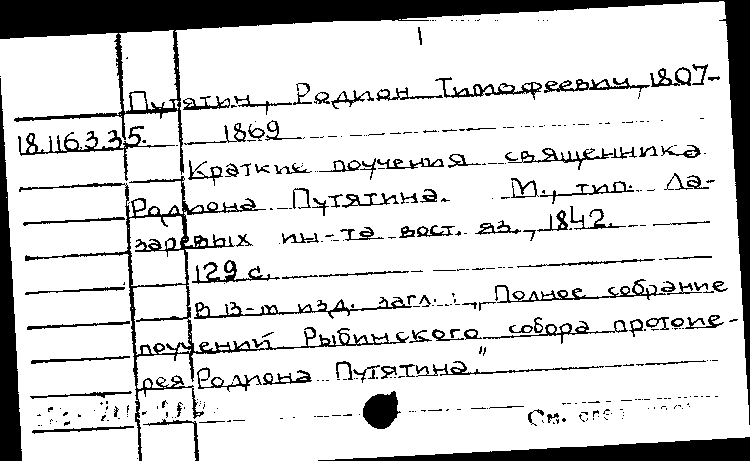 1
Путятин, Родион Тимофеевич, 1807-
18.116.3.35. 1869
Краткие поучения священника
Родиона Путятина. М., тип. Ла-
заревых ин-та вост. яз., 1842.
129 с.
В 13-м изд. загл.: „Полное собрание
поучений Рыбинского собора протоие-
рея Родиона Путятина."
См.